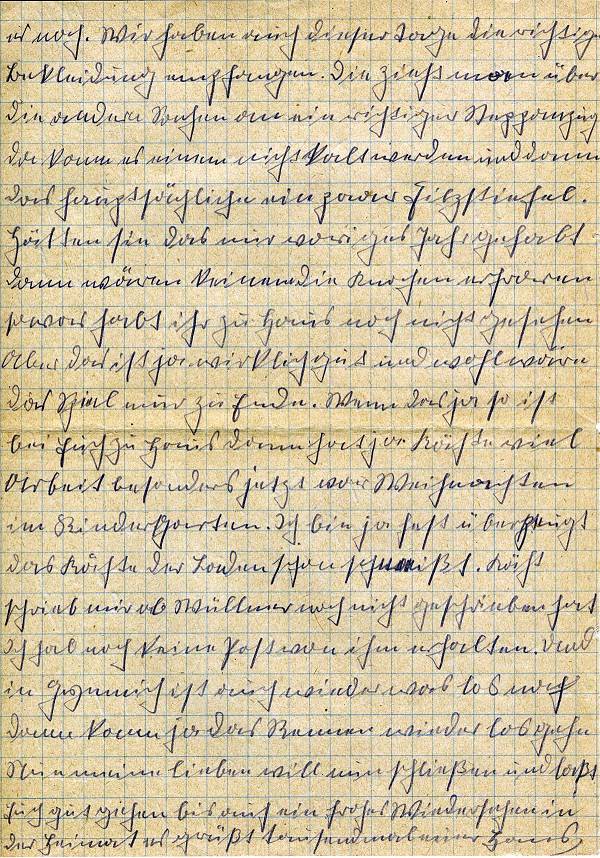 es noch. Wir haben auch dieser Tage die richtige
Bekleidung empfangen. Die zieht man über
die andern Sachen an ein richtiger Steppanzug
da kann es einem nicht kalt werden und dann
das hauptsächliche ein paar Filzstiefel.
Hätten sie das nur voriges Jahr gehabt
dann wären keinem die Knochen erfroren
sowas habt ihr zu Haus noch nicht gesehen
Aber das ist ja wirklich gut und wohl wäre
das Spiel nur zu Ende. Wenn das ja so ist
bei Euch zu Haus dann hat ja Käthe viel
Arbeit besonders jetzt vor Weihnachten
im Kindergarten. Ich bin ja fest überzeugt
das Käthe der Laden schon schmeißt. Käth
schrieb mir ob Wüllner noch nicht geschrieben hat
Ich hab noch keine Post von ihm erhalten. Und
in Gymnich ist auch wieder was los
dann kann ja das Rennen wieder losgehn
Nun meine lieben will nun schließen und laßt
Euch gut gehen bis auf ein frohes Wiedersehen in
der Heimat es grüßt tausendmal euer Hans